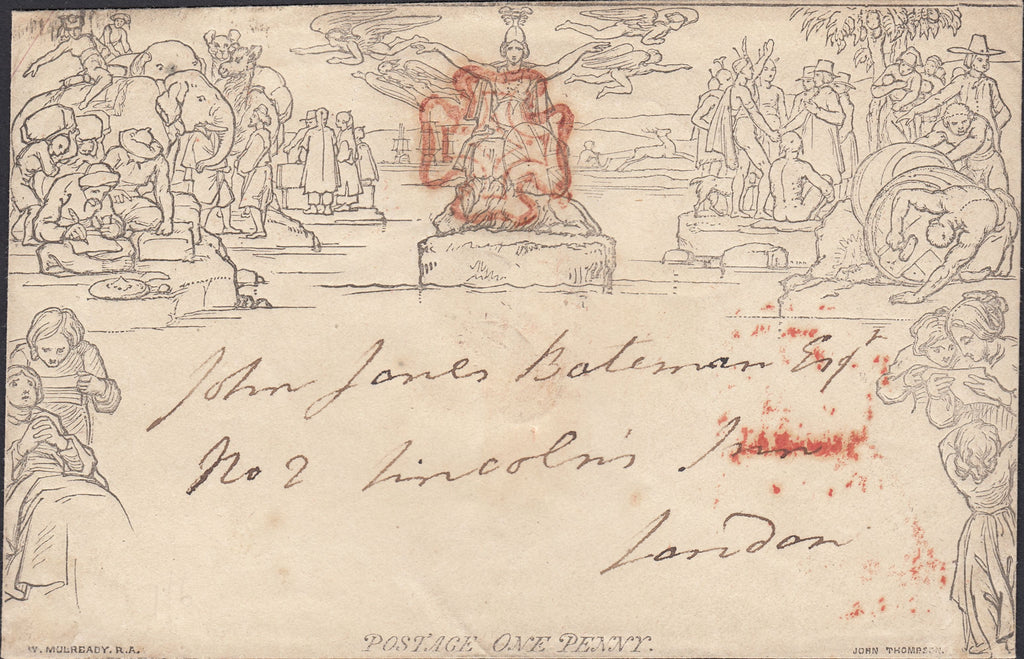 John Jones Bateman Esqr
No 2 Lincoln's Inn
London
POSTAGE ONE PENNY.
W. MULREADY. R.A.
JOHN THOMPSON.